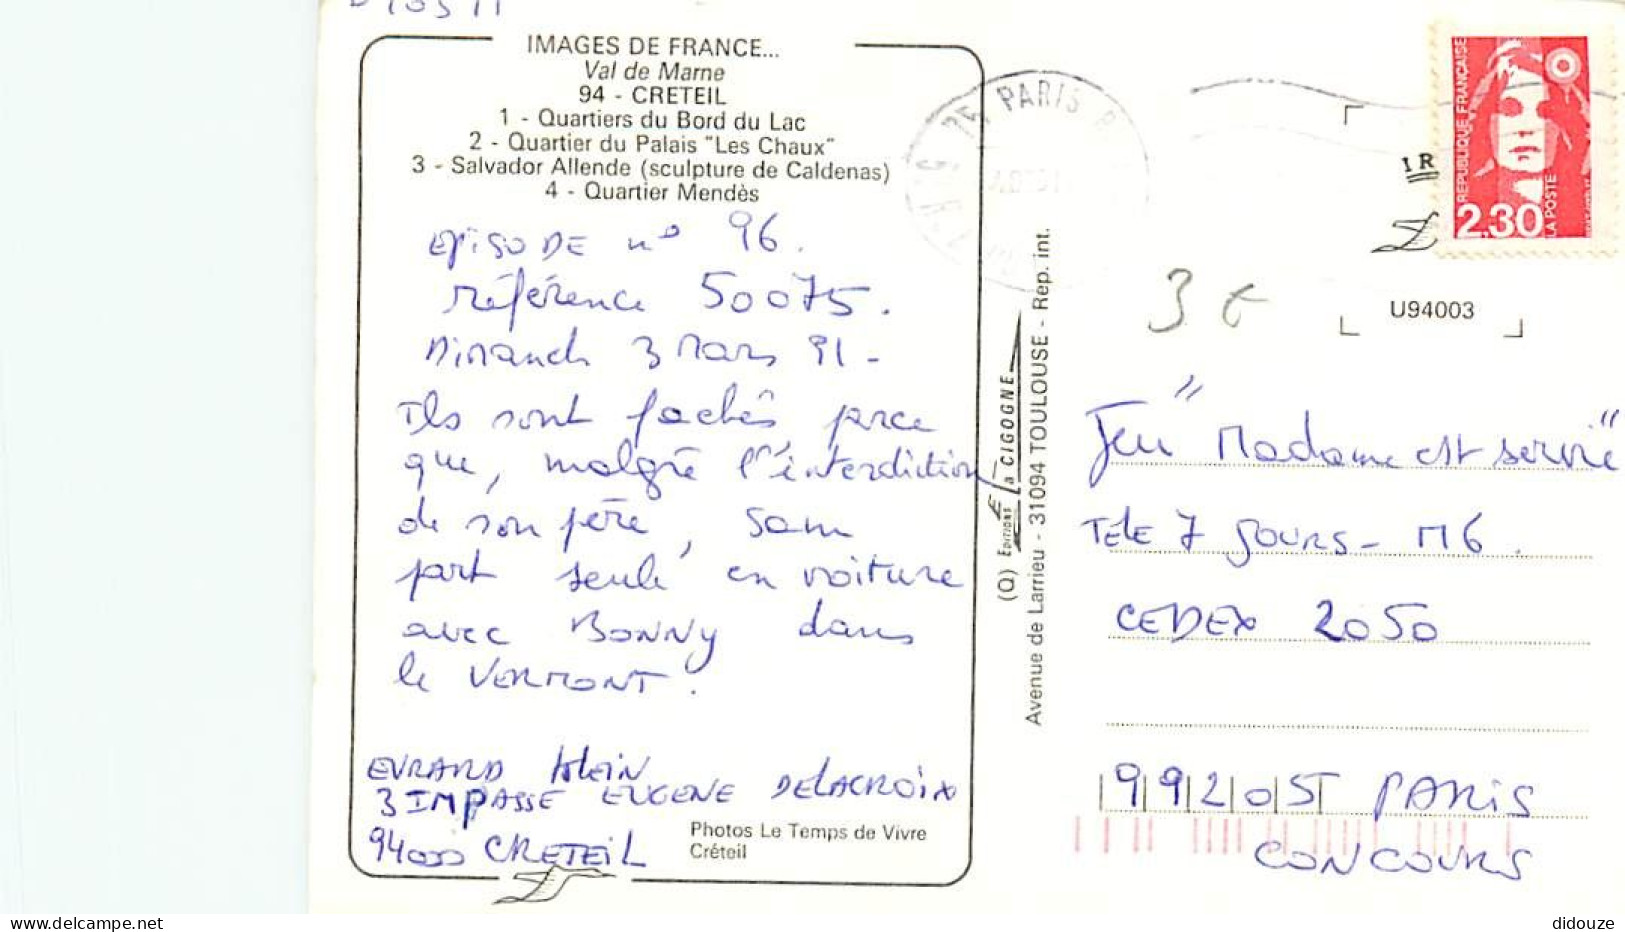 IMAGES DE FRANCE...
Val de Marne
94 - CRETEIL
1 - Quartiers du Bord du Lac
2 - Quartier du Palais "Les Chaux"
3 - Salvador Allende (sculpture de Caldenas)
4 - Quartier Mendès
EPISODE n° 96.
référence 50075.
Dimanche 3 Mars 91 -
Ils sont fachés parce
que, malgré l'interdiction
de son père, Sam
part seule en voiture
avec BONNY dans
le VERMONT.
EVRARD
3 IMPASSE EUGENE DELACROIX
94000 CRETEIL
Photos Le Temps de Vivre
Créteil
(Q) EDITIONS la CIGOGNE
Avenue de Larrieu - 31094 TOULOUSE - Rep. int.
PARIS
REPUBLIQUE FRANÇAISE
2,30
LA POSTE
1 R
U94003
3 €
Jeu "Madame est servie"
TELE 7 JOURS - M6.
CEDEX 2050
99205 PARIS
CONCOURS
didouze